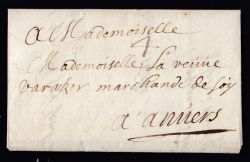 A Mademoiselle
Mademoiselle La veuve
varaker marchande de soy
a anvers